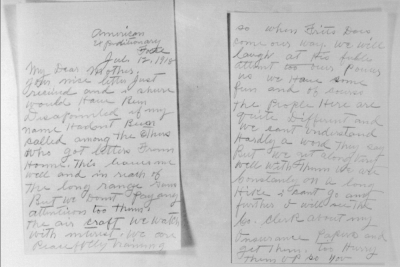 American
Expeditionary
Force
July 12, 1918
My Dear Mother,
Your nice letter just
received and I should
would have been
disapointed if my
name hadent been
called among the others
who got letters from
Home. This leaves me
well and in reach of
the long range Guns
But we Dont pay any
attention too them
the air craft we watch
with interest. We are
so when Fritz Does
come our way we will
laugh at his futle
attemt too our
us we have some
fun and of course
the People Here are
quite Different and
We cant understand
Hardly a word they say
But we get along
well with them We are
constantly on a long
Hike I cant go into
further I will see the
Co. Clerk about my
Insurance Papers and
get them in Hurry
them up so you